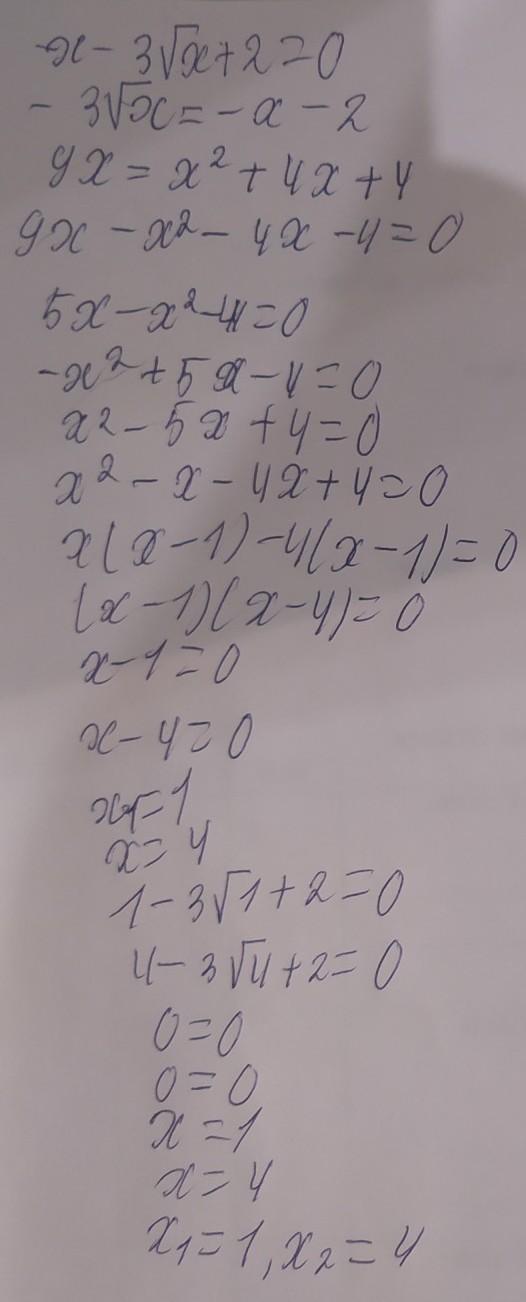 x - 3√x + 2 = 0
- 3√x = -x - 2
9x = x² + 4x + 4
9x - x² - 4x - 4 = 0
5x - x² - 4 = 0
-x² + 5x - 4 = 0
x² - 5x + 4 = 0
x² - x - 4x + 4 = 0
x(x - 1) - 4(x - 1) = 0
(x - 1)(x - 4) = 0
x - 1 = 0
x - 4 = 0
x = 1
x = 4
1 - 3√1 + 2 = 0
4 - 3√4 + 2 = 0
0 = 0
0 = 0
x = 1
x = 4
x₁ = 1, x₂ = 4